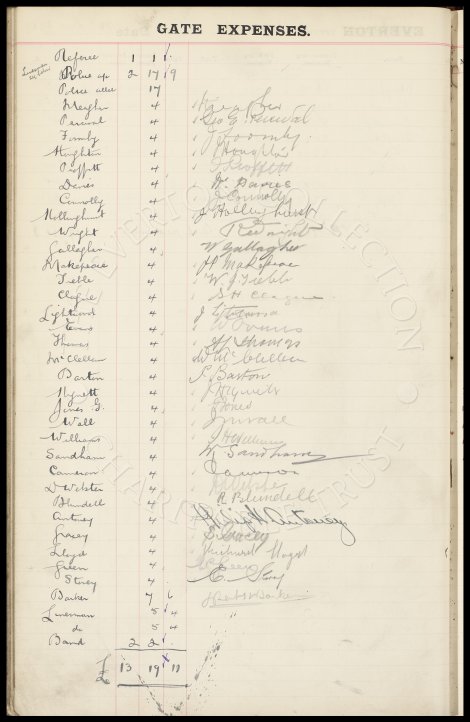 GATE EXPENSES.
Referee 1 1
Police 2 17 9
Police 17
Meagher 4
Percival 4 Geo G Percival
Formby 4 J Formby
Houghton 4 Houghton
Proffitt 4 Proffitt
Davies 4 Davies
Connolly 4 J Connolly
Hollinghurst 4 J Hollinghurst
Wright 4
Gallagher 4 W Gallagher
Makepeace 4 Makepeace
Tieble 4 W J Tiebble
Clague 4 S H Clague
Lightwood 4
Evans 4 W Evans
Thomas 4 Thomas
McClellan 4 W McClellan
Barton 4 P Barton
Hignett 4 Hignett
Jones G. 4 Jones
Wall 4 Wall
Williams 4 Williams
Sandham 4 Sandham
Cameron 4 Cameron
D Webster 4 Webster
Blundell 4 R Blundell
Antney 4 Antney
Gracey 4
Lloyd 4 Lloyd
Green 4 Green
Storey 4 E Storey
Barker 7 6 Barker
Linesman 5 4
do 5 4
Band 2 2
£ 13 19 11
EVERTON COLLECTION
CHARITABLE TRUST